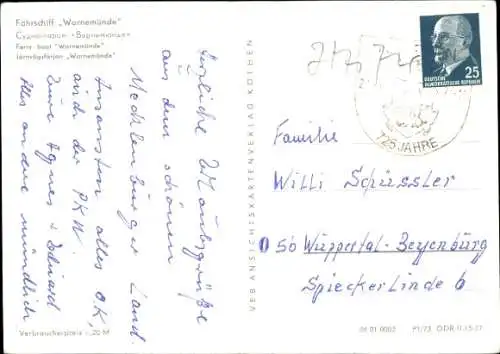 Fährschiff „Warnemünde"
Судно-паром «Варнемюнде»
Ferry-boat "Warnemünde"
Järnvägsfärjan „Warnemünde"
Herzliche Urlaubsgrüße
aus dem schönen
Mecklenburger Land.
Ansonsten alles O.K,
auch der PKW.
Eure Agnes + Eduard
Alles andere mündlich
Verbraucherpreis: 0,20 M
VEB ANSICHTSKARTENVERLAG KÖTHEN
DEUTSCHE
DEMOKRATISCHE REPUBLIK
25
725 JAHRE
Familie
Willi Schüssler
56 Wuppertal-Beyenburg
Spieckerlinde 6
01 01 0003
P1/73